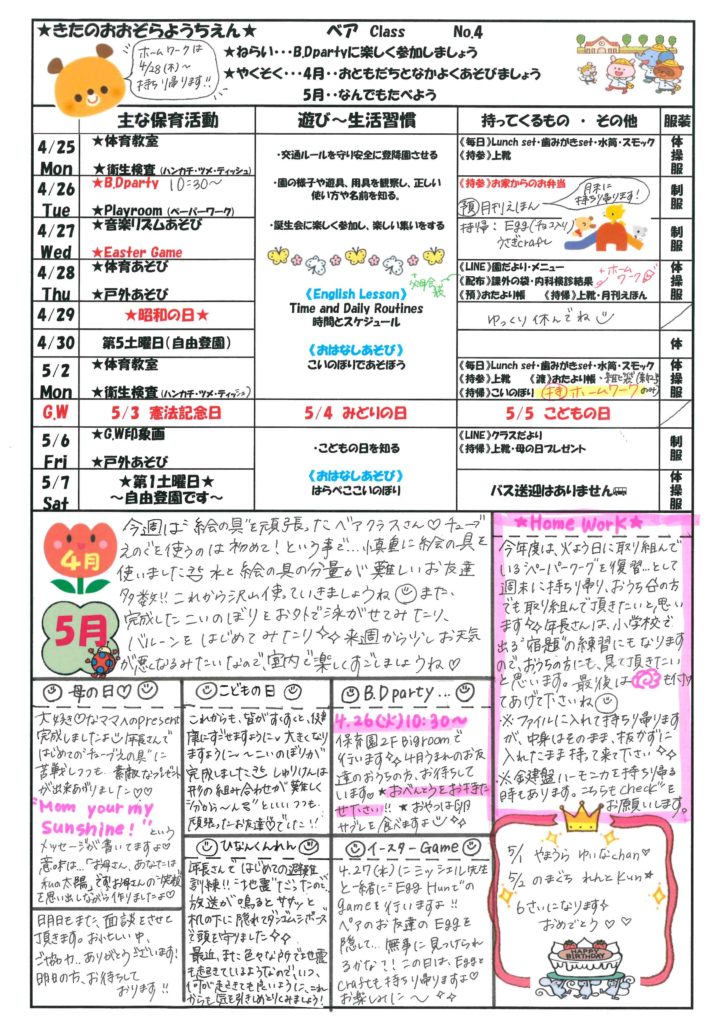 ★きたのおおぞらようちえん★ ベア Class No.4
ホームワークは
4/28(木)～
持ち帰ります!!
★ねらい・・・B.Dpartyに楽しく参加しましょう
★やくそく・・・4月・・おともだちとなかよくあそびましょう
5月・・なんでもたべよう
主な保育活動 遊び～生活習慣 持ってくるもの ・ その他 服装
4/25 Mon
★体育教室
★衛生検査（ハンカチ・ツメ・ティッシュ）
《毎日》Lunch set・歯みがきset・水筒・スモック
《持参》上靴
体操服
4/26 Tue
★B.Dparty 10:30～
★Playroom（ペーパーワーク）
《持参》お家からのお弁当
預月刊えほん
月末に持ち帰ります!
制服
4/27 Wed
★音楽リズムあそび
★Easter Game
持帰：Egg(チョコ入り)
うさぎcraft
制服
4/28 Thu
★体育あそび
★戸外あそび
《LINE》園だより・メニュー
《配布》課外の袋・内科検診結果
+ホームワーク
《預》おたより帳 《持帰》上靴・月刊えほん
体操服
4/29
★昭和の日★
ゆっくり休んでね
4/30
第5土曜日（自由登園）
体
5/2 Mon
★体育教室
★衛生検査（ハンカチ・ツメ・ティッシュ）
《毎日》Lunch set・歯みがきset・水筒・スモック
《持参》上靴 《渡》おたより帳
《持帰》こいのぼり ホームワーク
体操服
・交通ルールを守り安全に登降園させる
・園の様子や遊具、用具を観察し、正しい
使い方や名前を知る。
・誕生会に楽しく参加し、楽しい集いをする
《English Lesson》
Time and Daily Routines
時間とスケジュール
《おはなしあそび》
こいのぼりであそぼう
G.W 5/3 憲法記念日 5/4 みどりの日 5/5 こどもの日
5/6 Fri
★G.W印象画
★戸外あそび
・こどもの日を知る
《LINE》クラスだより
《持帰》上靴・母の日プレゼント
制服
5/7 Sat
★第1土曜日★
～自由登園です～
《おはなしあそび》
はらぺここいのぼり
バス送迎はありません
体操服
4月
5月
今週は"絵の具"を頑張ったベアクラスさん♡チューブ
えのぐを使うのは初めて!という事で…慎重に絵の具を
使いました 水と絵の具の分量が難しいお友達
多数!! これから沢山使っていきましょうね また、
完成したこいのぼりをお外で泳がせてみたり、
バルーンをはじめてみたり 来週から少しお天気
が悪くなるみたいなので、室内で楽しくすごしましょうね♡
★Home Work★
今年度は、火よう日に取り組んで
いるペーパーワークを"復習"…として
週末に持ち帰り、おうちの方
でも取り組んで頂きたいと思い
ます 年長さんは、小学校で
出る"宿題"の練習にもなります
ので、おうちの方にも、見て頂きたい
と思います。最後は も付け
てあげて下さいね
※ファイルに入れて持ち帰ります
が、中身はそのまま、抜かずに
入れたまま持って来て下さい
※鍵盤ハーモニカを持ち帰る
時もあります。こちらもcheckを
お願いします。
母の日♡
大好き♡なママへのpresent
完成しましたよ 年長さんで
はじめての"チューブえの具"に
苦戦しつつも…素敵なプレゼント
が出来あがりました♡♡
"Mom your my
Sunshine!"という
メッセージが書いてますよ♡
意味は…「お母さん、あなたは
私の太陽」です お母さんの"笑顔"
を思い出しながら作りましたよ
明日もまた、面談をさせて
頂きます。お忙しい中、
ご協力…ありがとうございます!
明日の方、お待ちして
おります!!
こどもの日
これからも、皆がすくすくと、健
康にすごせますように 大きくなり
ますように～ こいのぼりが
完成しました しゅりけんは
形の組み合わせが"難しく
といいつつも
頑張ったお友達 でした!!
ひなんくんれん
年長さんではじめての避難
訓練!! "地震"だったので、
放送が鳴ると サササッ と
机の下に隠れてダンゴムシポーズ
で頭を守りました
最近、また、色々な所で地震
も起きているようなので、いつ、
何が起きても良いように、これ
からも気を引きしめとりくみましょう!
B.D party…
4.26(火)10:30～
保育園2F Bigroomで
行います 4月うまれのお友
達のおうちの方、お待ちして
います ★おべんとうをお持た
せ下さい!! ★おやつは6月
サブレを食べますよ
イースターGame
4.27(水)にミッシェル先生
と一緒に"Egg Hunt"の
gameを行いますよ!!
ペアのお友達のEggを
隠して… 無事に見つけられ
るかな?! この日は、Eggと
craftも持ち帰りますよ♡
お楽しみに～
5/1 やまうら ゆいなchan♡
5/2 のまぐち れんとKun★
6さいになります
おめでとう♡♡
HAPPY BIRTHDAY